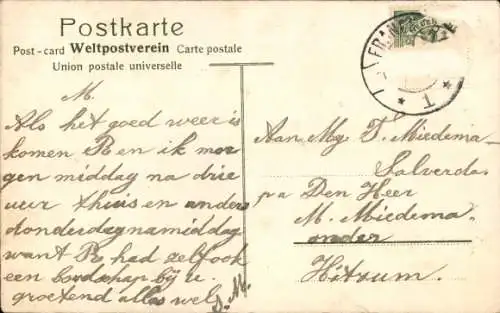 Postkarte
Post-card Weltpostverein Carte postale
Union postale universelle
FRAN
M.
Als het goed weer is
komen R en ik mor
gen middag na drie
uur thuis en anders
donderdagnamiddag
want R had zelf ook
een boodschap bij u.
groetend alles wel
D. M.
Aan Mej T. Miedema-
Salverda.
pa Den Heer
M. Miedema
onder
Hitzum.